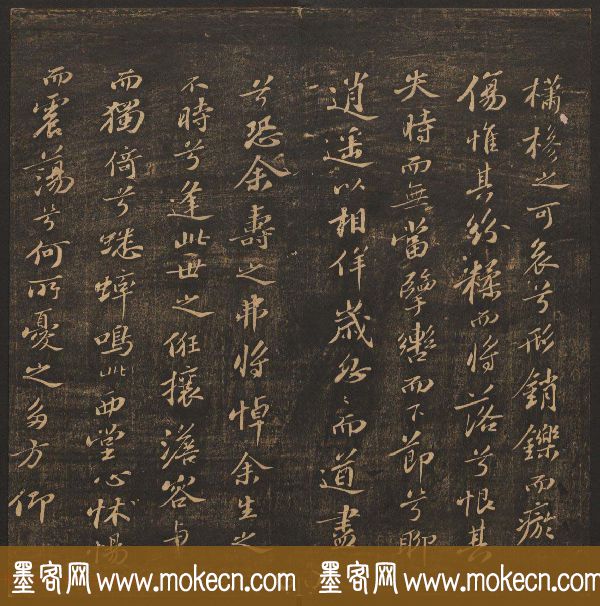 櫹槮之可哀兮形銷鑠而瘀
傷惟其紛糅而將落兮恨其
失時而無當擥轡而下節兮聊
逍遥以相佯歲忽〻而遒盡
兮恐余壽之弗將悼余生之
不時兮逢此世之俇攘澹容与
而獨倚兮蟋蟀鳴此西堂心怵惕
而震蕩兮何所憂之多方仰
墨客网 www.mokecn.com 墨客网 www.mokecn.com